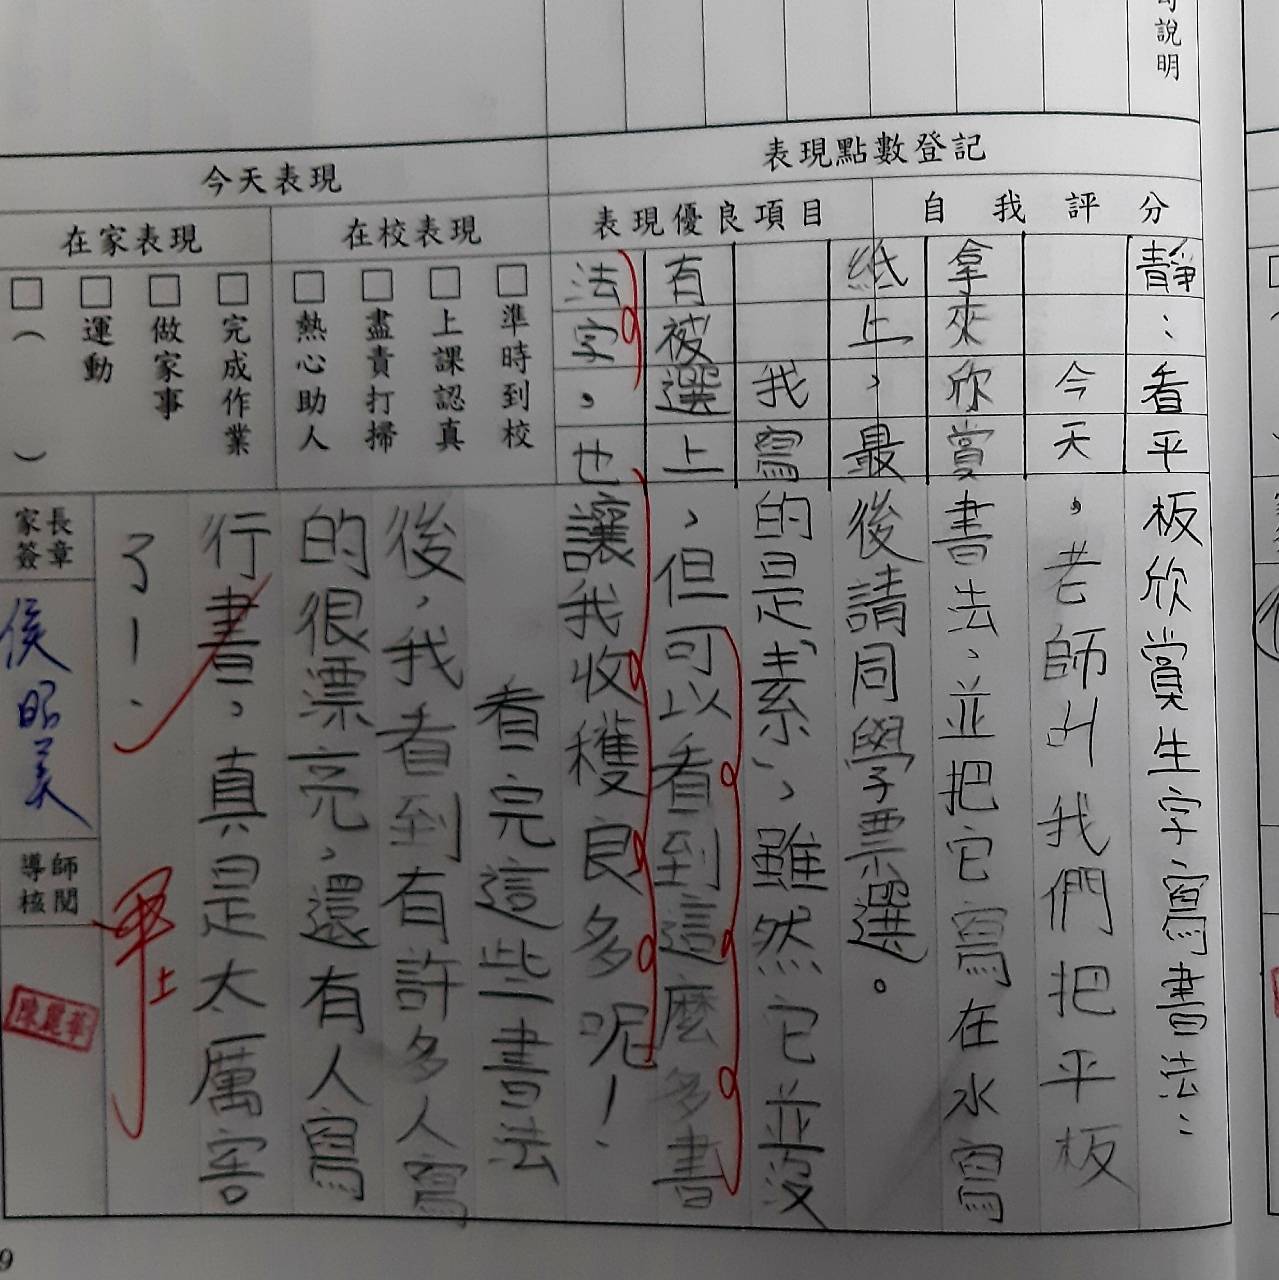 句說明
表現點數登記
自我評分
表現優良項目
今天表現
在校表現
在家表現
□準時到校
□上課認真
□盡責打掃
□熱心助人
□完成作業
□做家事
□運動
□（　）
靜：看平板欣賞生字寫書法：
今天，老師叫我們把平板
拿來欣賞書法，並把它寫在水寫
紙上，最後請同學票選。
我寫的是「素」，雖然它並沒
有被選上，但可以看到這麼多書
法字，也讓我收穫良多呢！
看完這些書法
後，我看到有許多人寫
的很漂亮，還有人寫
行書，真是太厲害
了！
甲上
家長
簽章
侯昭美
導師
核閱
陳麗華
9